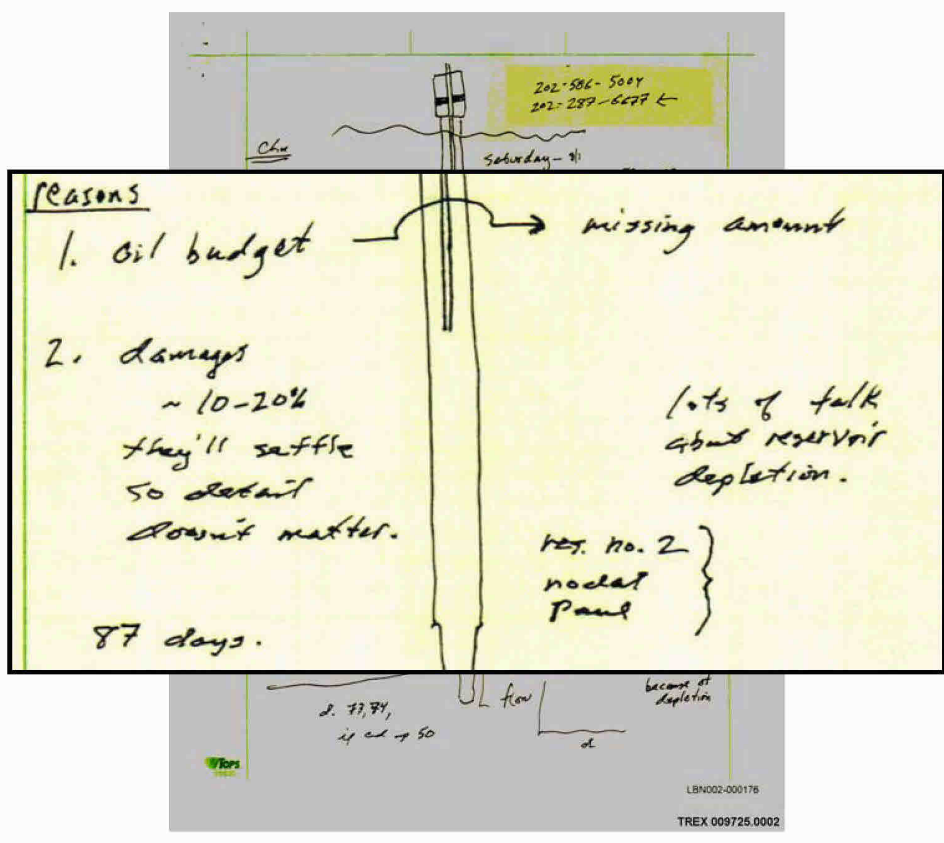 202-586-5004
202-287-6677 ←
Chu
Saturday - 8/1
reasons
1. oil budget → missing amount
2. damages
~ 10-20%
they'll settle
so detail
doesn't matter.
lots of talk
about reservoir
depletion.
res. no. 2
nodal
Paul
87 days.
flow
because of
depletion
d. 73, 74,
ended up 50
d
TOPS
LBN002-000176
TREX 009725.0002